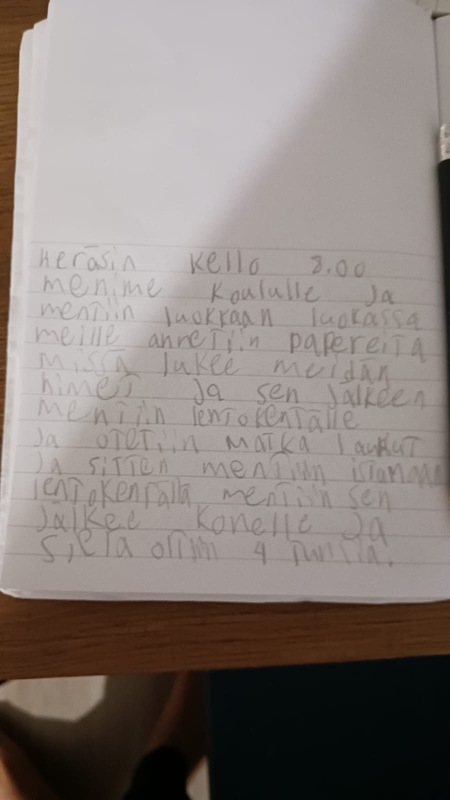 Heräsin kello 8.00
menime koululle ja
mentiin luokkaan luokassa
meille annetiin papereita
missä lukee meidän
nimet ja sen jälkeen
mentiin lentokentälle
ja otetiin matka laukut
ja sitten mentiin istamaan
lentokentällä mentiin sen
jälkee konelle ja
sielä oltiin 4 tuntia.